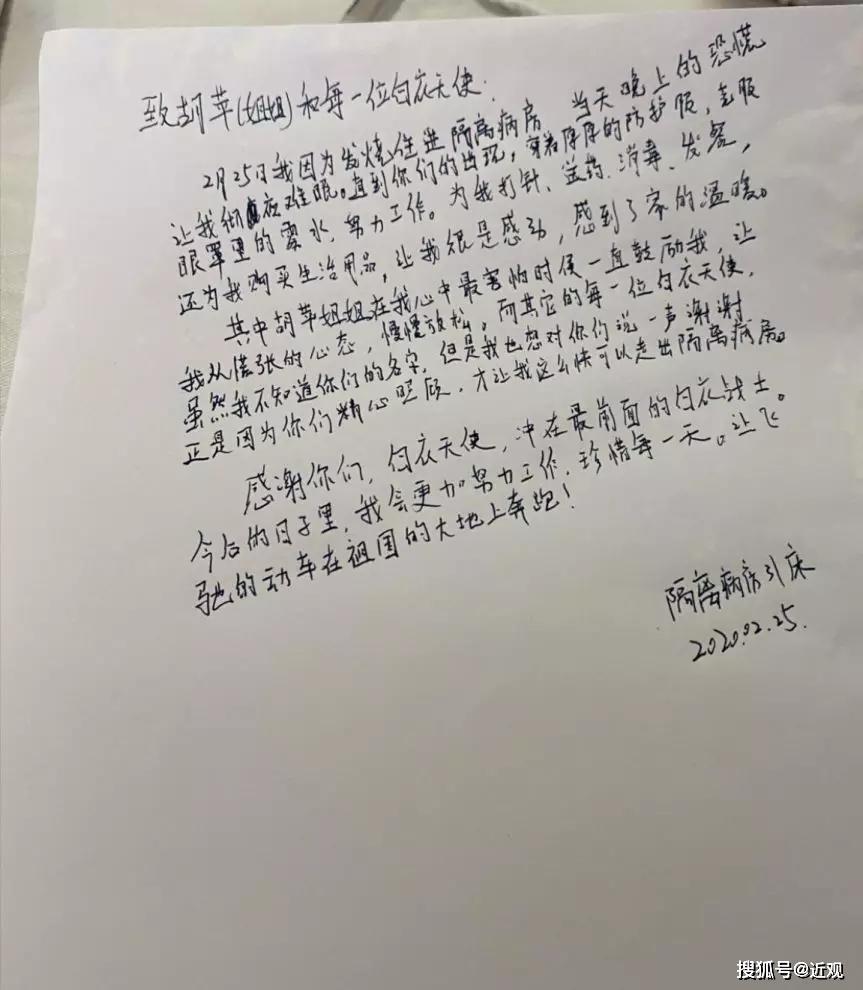 致胡苹(姐姐)和每一位白衣天使.
2月25日我因为发烧住进隔离病房 当天晚上的恐慌
让我彻夜难眠。直到你们的出现,穿着厚厚的防护服,克服
眼罩里的雾水,努力工作。为我打针、送药、消毒、发餐,
还为我购买生活用品,让我很是感动,感到了家的温暖。
其中胡苹姐姐在我心中最害怕时侯一直鼓励我,让
我从慌张的心态,慢慢放松。而其它的每一位白衣天使,
虽然我不知道你们的名字,但是我也想对你们说一声谢谢
正是因为你们精心照顾,才让我这么快可以走出隔离病房。
感谢你们,白衣天使,冲在最前面的白衣战士。
今后的日子里,我会更加努力工作,珍惜每一天。让飞
驰的动车在祖国的大地上奔跑!
隔离病房31床
2020.02.25.
搜狐号@近观